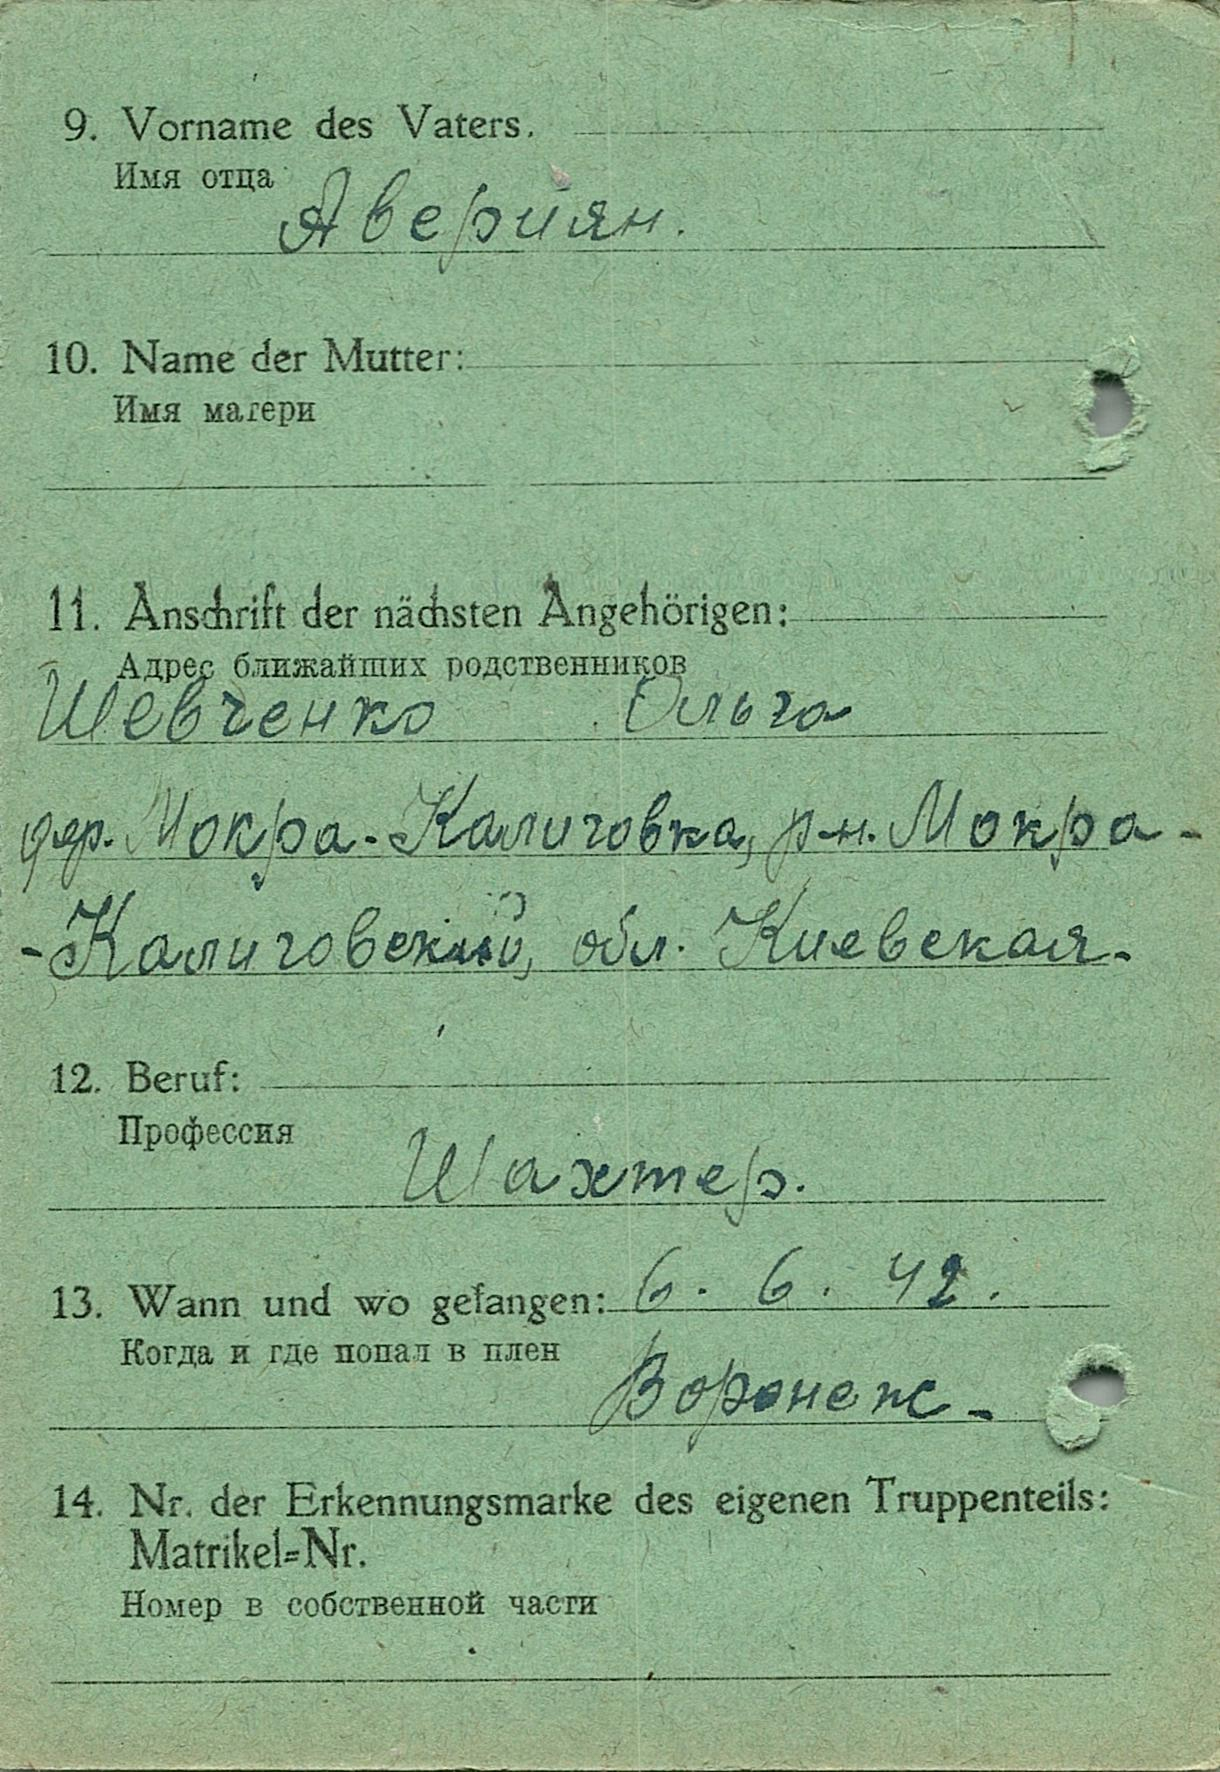 9. Vorname des Vaters.
Имя отца
Авериян.
10. Name der Mutter:
Имя матери
11. Anschrift der nächsten Angehörigen:
Адрес ближайших родственников
Шевченко Ольга
дер. Мокра-Калиговка, р-н. Мокра-
-Калиговский, обл. Киевская.
12. Beruf:
Профессия
Шахтер.
13. Wann und wo gefangen: 6. 6. 42.
Когда и где попал в плен
Воронеж -
14. Nr. der Erkennungsmarke des eigenen Truppenteils:
Matrikel=Nr.
Номер в собственной части